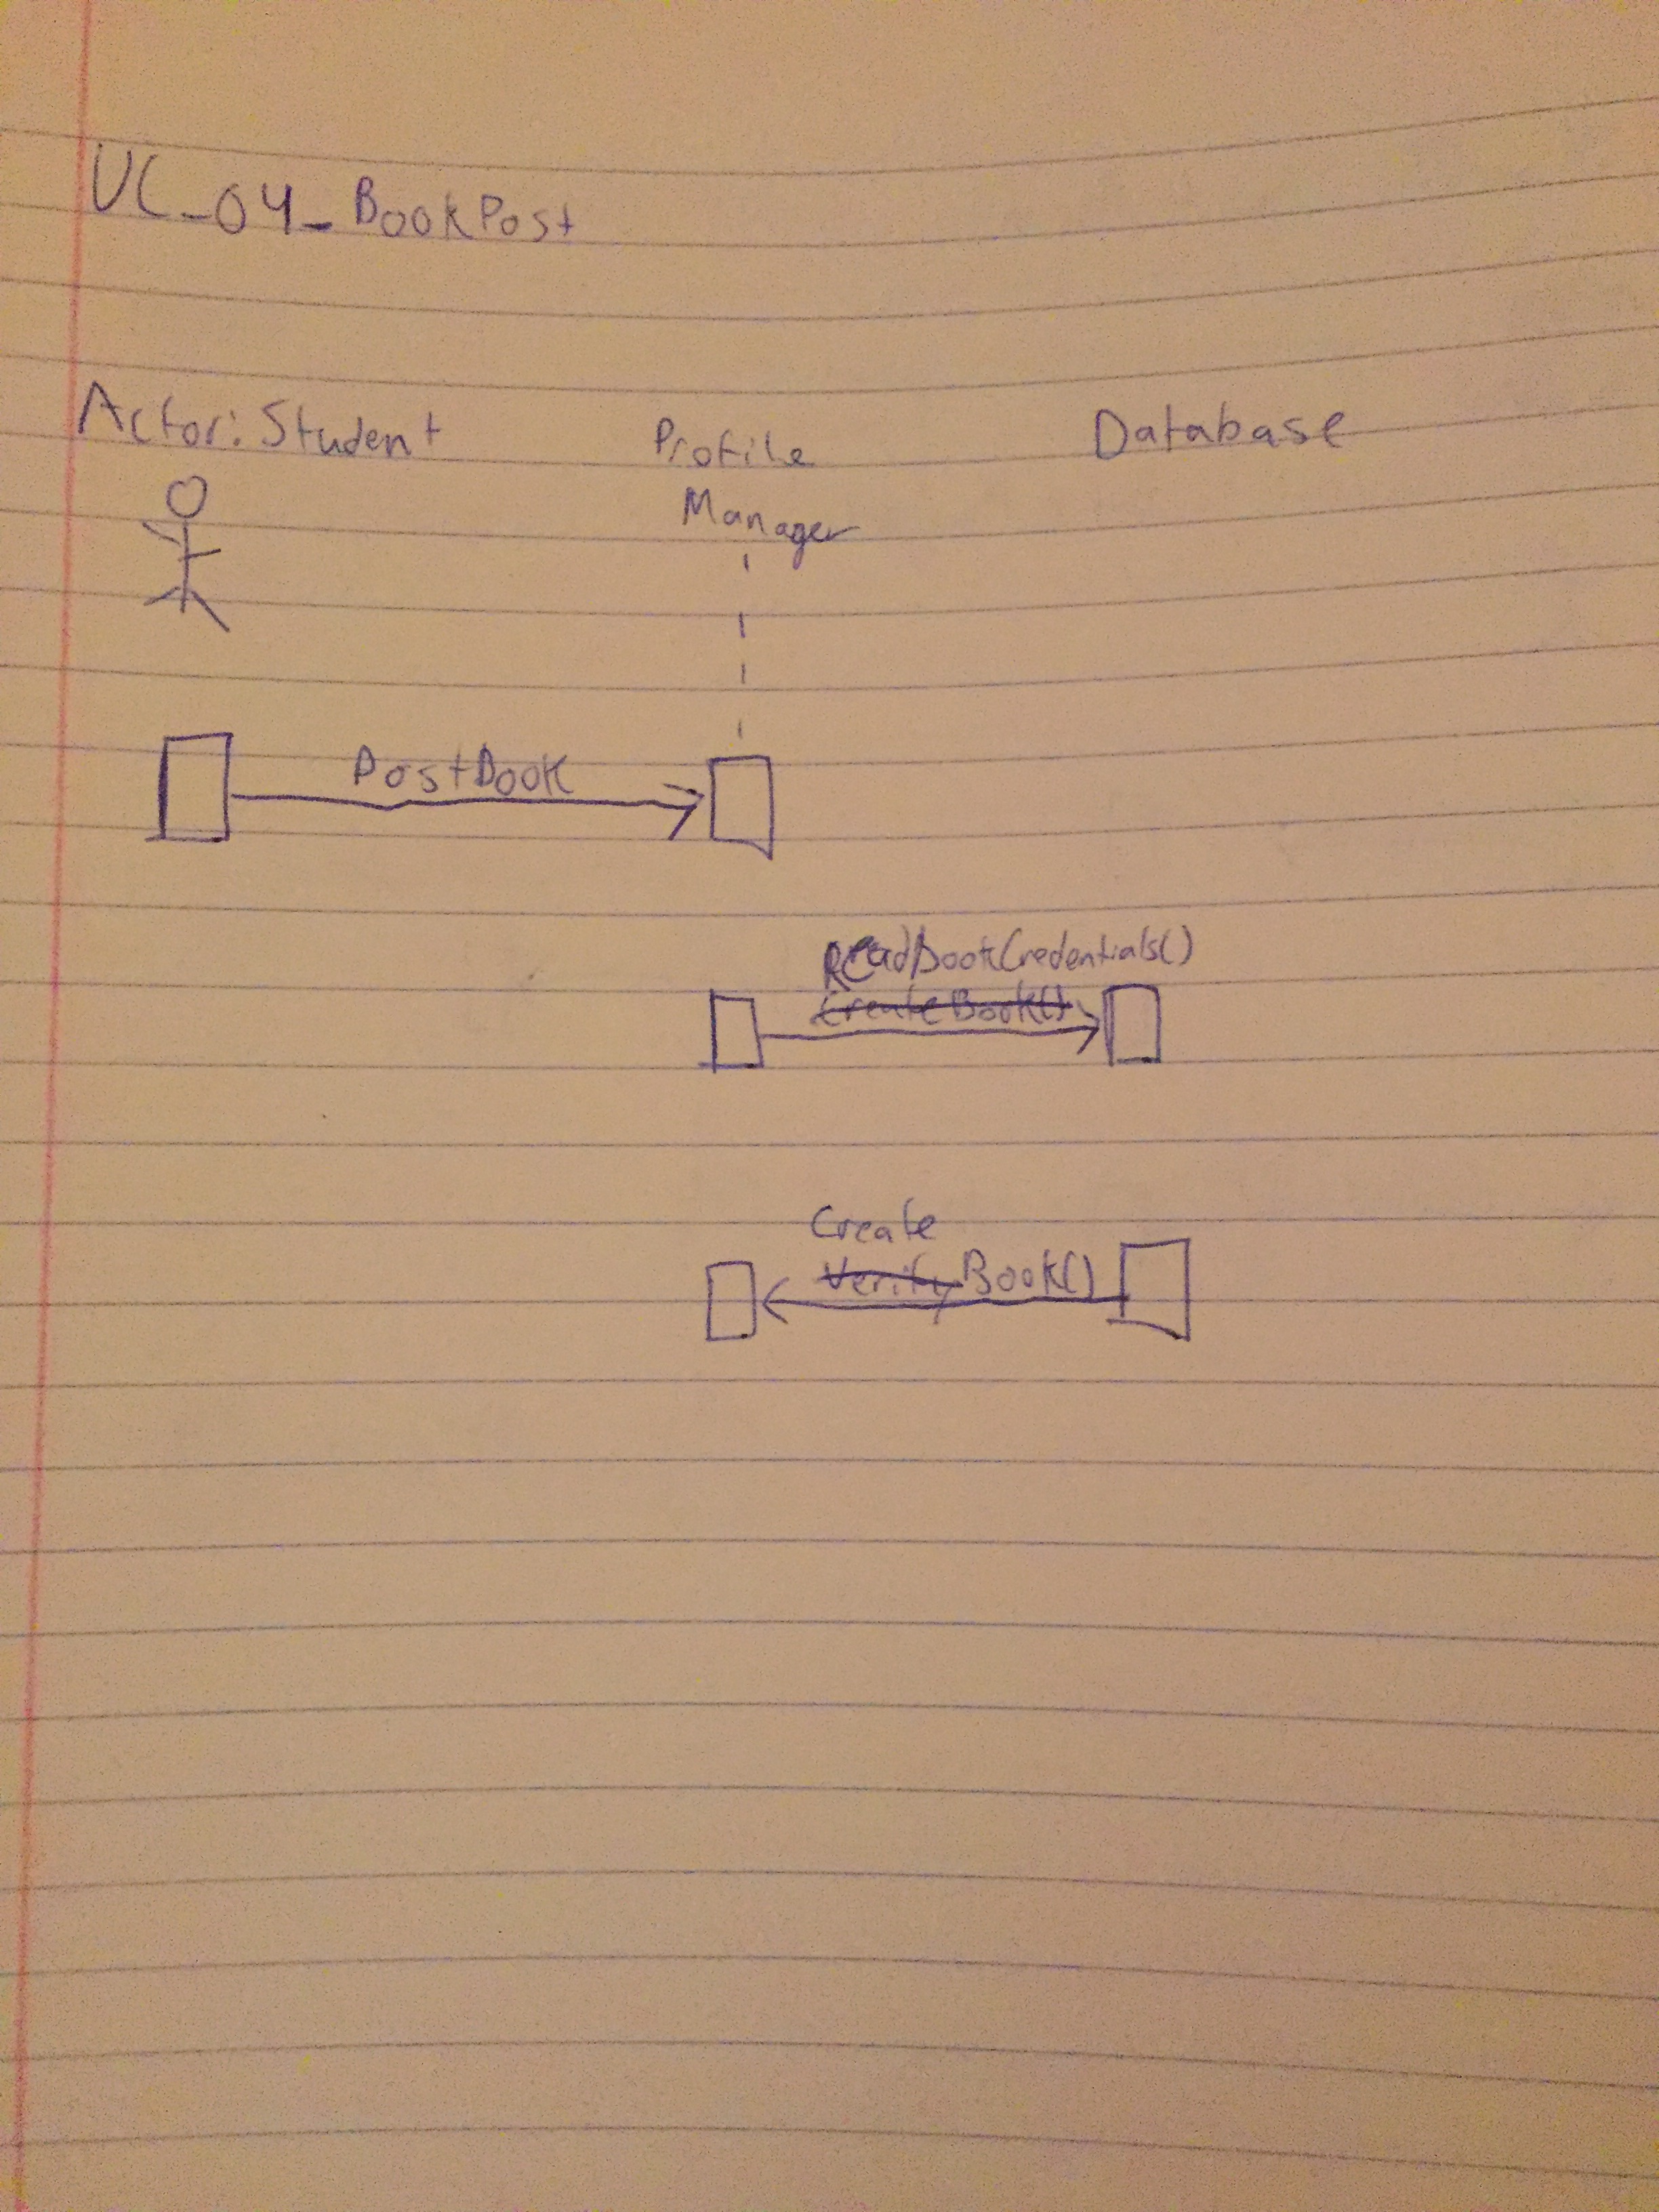 UC_04_BookPost
Actor: Student
Profile
Manager
Database
PostBook
ReadBookCredentials()
CreateBook()
Create
VerifyBook()